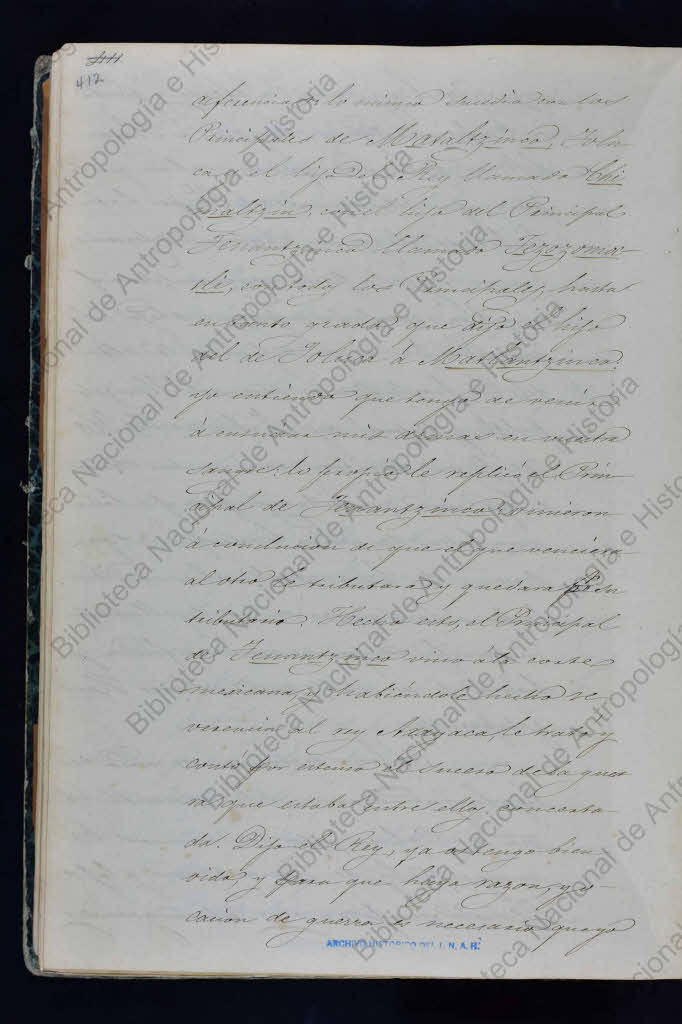 411
412
diferencias: lo mismo sucedia con los
Principales de Mataltzinco, Tolu-
ca, el hijo del Rey llamado Chi-
maltzin, con el hijo del Principal
Tenantzinco llamado Tezozomo-
tli, con todos los Principales, hasta
en tanto grado, que dijo el hijo
del de Toluca á Matlantzinco:
yo entiendo que tengo de venir
á ensuciar mis armas en vuestra
sangre: lo propio le replicó el Prin-
cipal de Tenantzinco: vinieron
á conclusion de que el que venciera
al otro le tributara y quedara por su
tributario. Hecho esto, el Principal
de Tenantzinco vino á la corte
mexicana, y habiéndole hecho re-
verencia al rey Axayaca, le trató y
contó por estenso el suceso de la guer-
ra, que estaba entre ellos concerta-
da. Dijo el Rey, ya os tengo bien
oido, y para que haya razon, y o-
casion de guerra es necesario que yo
ARCHIVO HISTORICO DEL I. N. A. H.
Biblioteca Nacional de Antropología e Historia